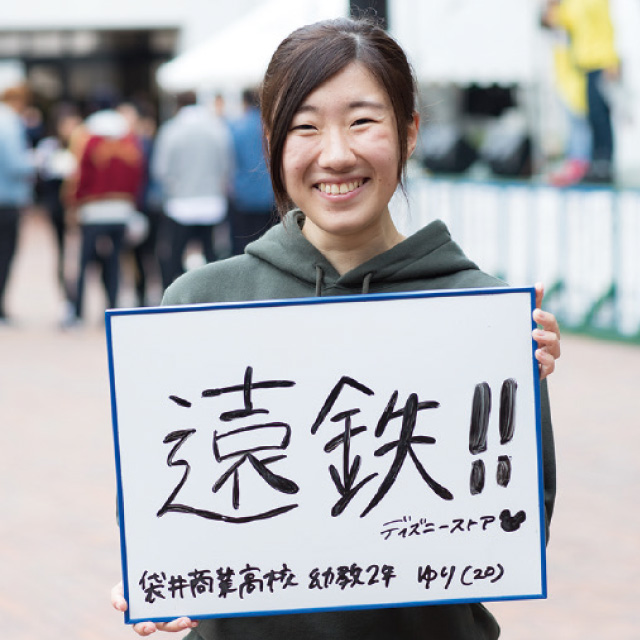 遠鉄!!
ディズニーストア
袋井商業高校 幼教2年 ゆり(20)